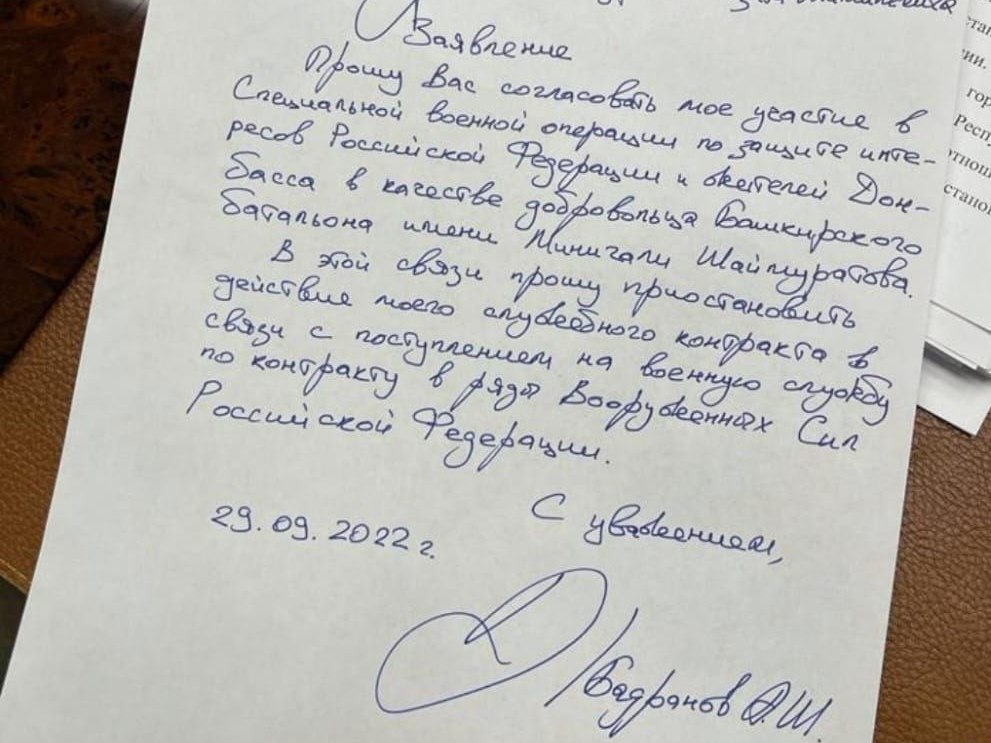 Заявление
Прошу Вас согласовать мое участие в
Специальной военной операции по защите инте-
ресов Российской Федерации и жителей Дон-
басса в качестве добровольца Башкирского
батальона имени Минигали Шаймуратова.
В этой связи прошу приостановить
действие моего служебного контракта в
связи с поступлением на военную службу
по контракту в ряды Вооруженных Сил
Российской Федерации.
29.09.2022 г.
С уважением,
/Бадранов А.Ш.
гор
Респ